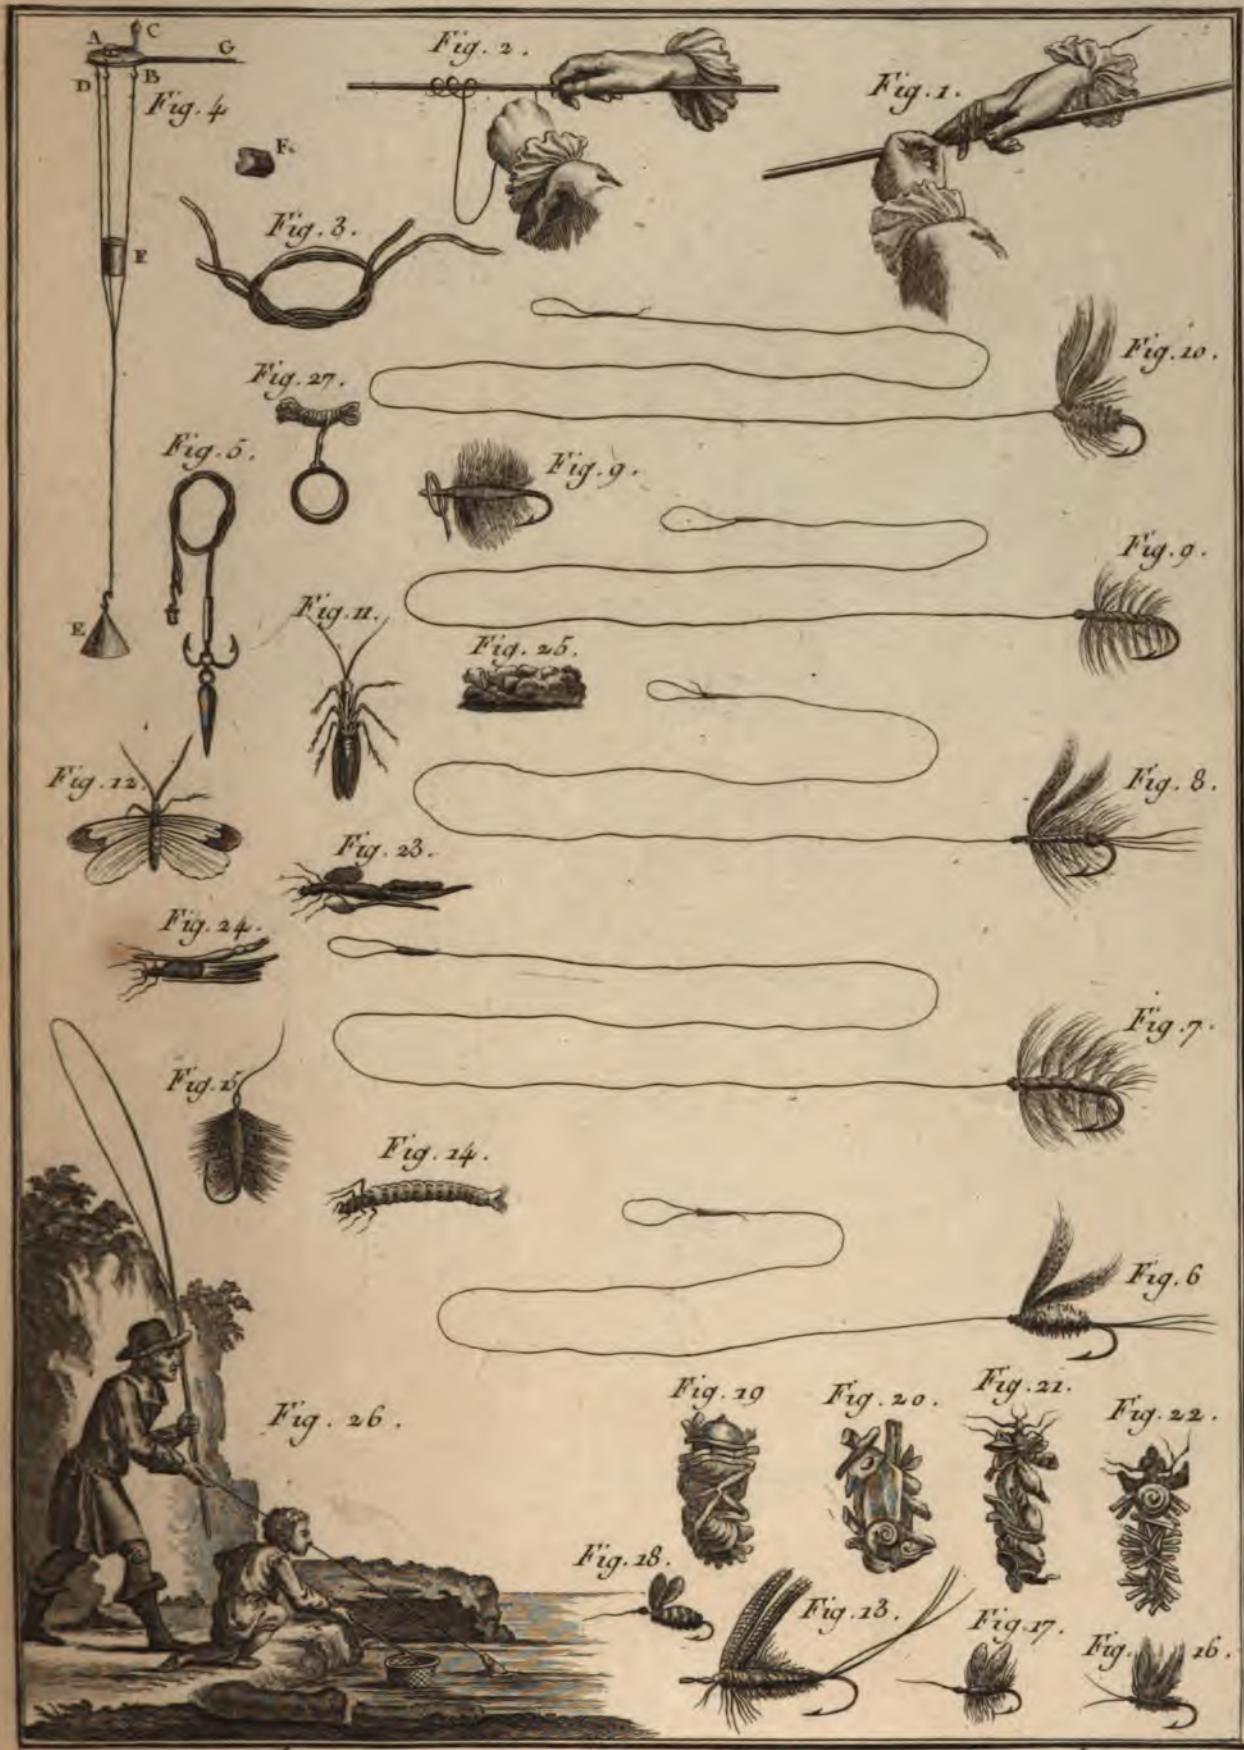 A C G
D B
Fig. 4
Fig. 2.
Fig. 1.
F.
Fig. 3.
E
Fig. 10.
Fig. 27.
Fig. 5.
Fig. 9.
Fig. 9.
E
Fig. 11.
Fig. 25.
Fig. 12.
Fig. 8.
Fig. 23.
Fig. 24.
Fig. 7.
Fig. 15
Fig. 14.
Fig. 6
Fig. 26.
Fig. 19
Fig. 20.
Fig. 21.
Fig. 22.
Fig. 18.
Fig. 13.
Fig. 17.
Fig. 16.